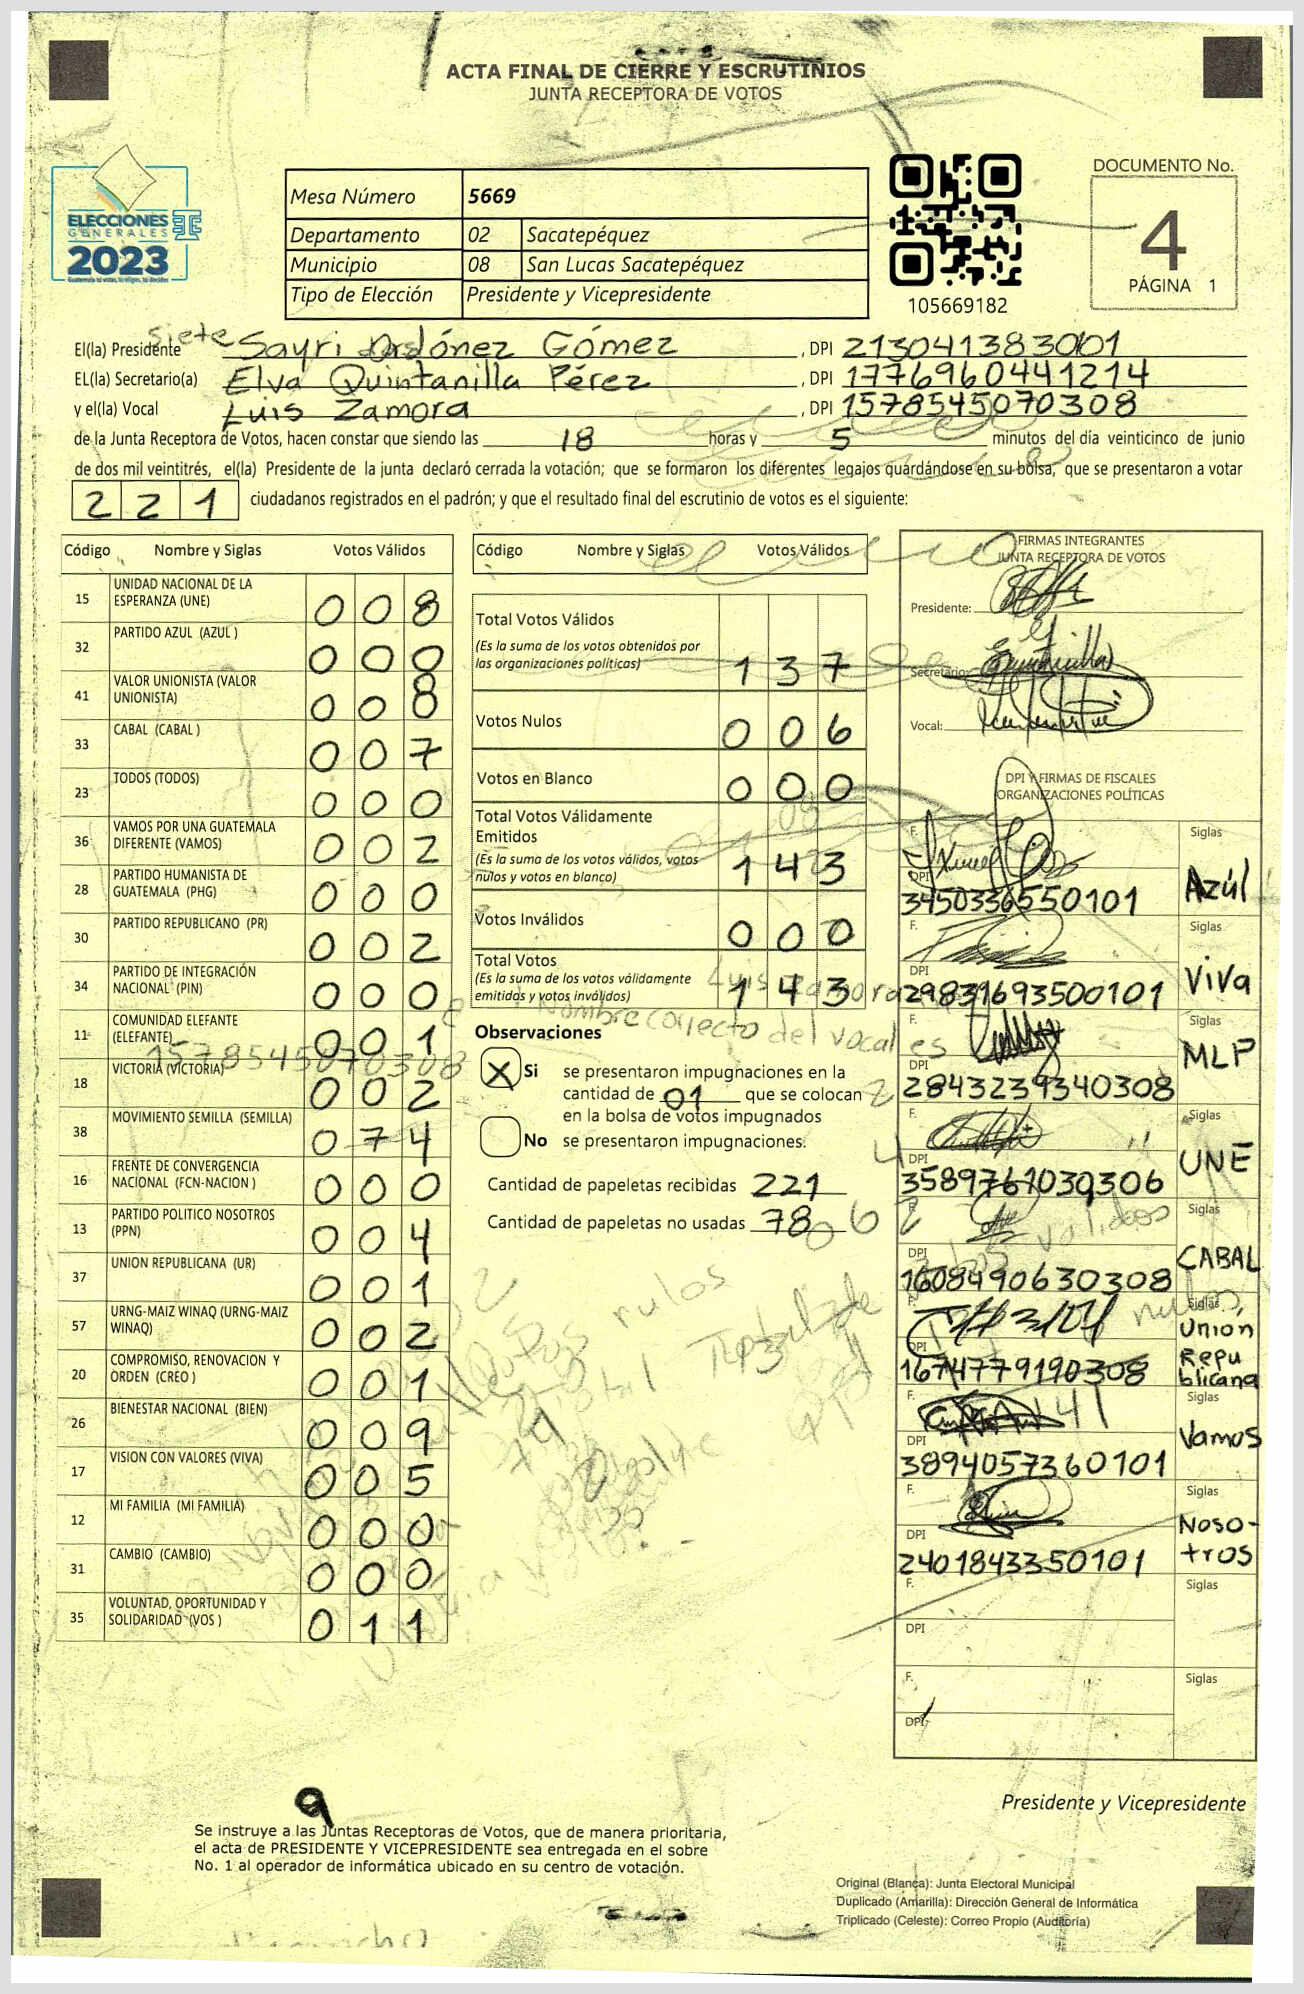 ACTA FINAL DE CIERRE Y ESCRUTINIOS
JUNTA RECEPTORA DE VOTOS
ELECCIONES
GENERALES
2023
Mesa Número 5669
Departamento 02 Sacatepéquez
Municipio 08 San Lucas Sacatepéquez
Tipo de Elección Presidente y Vicepresidente
105669182
DOCUMENTO No.
4
PÁGINA 1
siete
El(la) Presidente Sayri Ordónez Gómez , DPI 2130413830101
EL(la) Secretario(a) Elva Quintanilla Pérez , DPI 1776960441214
y el(la) Vocal Luis Zamora , DPI 1578545070308
de la Junta Receptora de Votos, hacen constar que siendo las 18 horas y 5 minutos del día veinticinco de junio
de dos mil veintitrés, el(la) Presidente de la junta declaró cerrada la votación; que se formaron los diferentes legajos guardándose en su bolsa, que se presentaron a votar
221 ciudadanos registrados en el padrón; y que el resultado final del escrutinio de votos es el siguiente:
Código Nombre y Siglas Votos Válidos
15 UNIDAD NACIONAL DE LA ESPERANZA (UNE) 008
32 PARTIDO AZUL (AZUL ) 000
41 VALOR UNIONISTA (VALOR UNIONISTA) 008
33 CABAL (CABAL ) 007
23 TODOS (TODOS) 000
36 VAMOS POR UNA GUATEMALA DIFERENTE (VAMOS) 002
28 PARTIDO HUMANISTA DE GUATEMALA (PHG) 000
30 PARTIDO REPUBLICANO (PR) 002
34 PARTIDO DE INTEGRACIÓN NACIONAL (PIN) 000
11 COMUNIDAD ELEFANTE (ELEFANTE) 001
1578545070308
18 VICTORIA (VICTORIA) 002
38 MOVIMIENTO SEMILLA (SEMILLA) 074
16 FRENTE DE CONVERGENCIA NACIONAL (FCN-NACION ) 000
13 PARTIDO POLITICO NOSOTROS (PPN) 004
37 UNION REPUBLICANA (UR) 001
57 URNG-MAIZ WINAQ (URNG-MAIZ WINAQ) 002
20 COMPROMISO, RENOVACION Y ORDEN (CREO ) 001
26 BIENESTAR NACIONAL (BIEN) 009
17 VISION CON VALORES (VIVA) 005
12 MI FAMILIA (MI FAMILIA) 000
31 CAMBIO (CAMBIO) 000
35 VOLUNTAD, OPORTUNIDAD Y SOLIDARIDAD (VOS ) 011
Código Nombre y Siglas Votos Válidos
Total Votos Válidos 137
(Es la suma de los votos obtenidos por las organizaciones políticas)
Votos Nulos 006
Votos en Blanco 000
Total Votos Válidamente Emitidos 143
(Es la suma de los votos válidos, votos nulos y votos en blanco)
Votos Inválidos 000
Total Votos 143
(Es la suma de los votos válidamente emitidos y votos inválidos)
Luis Zamora
Nombre correcto del vocal es
Observaciones
X Si se presentaron impugnaciones en la
cantidad de 01 que se colocan
en la bolsa de votos impugnados
No se presentaron impugnaciones.
Cantidad de papeletas recibidas 221
Cantidad de papeletas no usadas 78
nulos
validos
nulos
FIRMAS INTEGRANTES
JUNTA RECEPTORA DE VOTOS
Presidente:
Secretario:
Vocal:
DPI Y FIRMAS DE FISCALES
ORGANIZACIONES POLÍTICAS
F. Siglas
DPI 3450336550101 Azúl
F. Siglas
DPI 29831693500101 Viva
F. Siglas
DPI 2843239340308 MLP
F. Siglas
DPI 3589761030306 UNE
F. Siglas
DPI 1608490630308 CABAL
F. Siglas
DPI 1674779190308 Unión Republicana
F. Siglas
DPI 3894057360101 Vamos
F. Siglas
DPI 2401843350101 Noso-tros
F. Siglas
DPI
F. Siglas
DPI
Presidente y Vicepresidente
9
Se instruye a las Juntas Receptoras de Votos, que de manera prioritaria,
el acta de PRESIDENTE Y VICEPRESIDENTE sea entregada en el sobre
No. 1 al operador de informática ubicado en su centro de votación.
Original (Blanca): Junta Electoral Municipal
Duplicado (Amarilla): Dirección General de Informática
Triplicado (Celeste): Correo Propio (Auditoría)